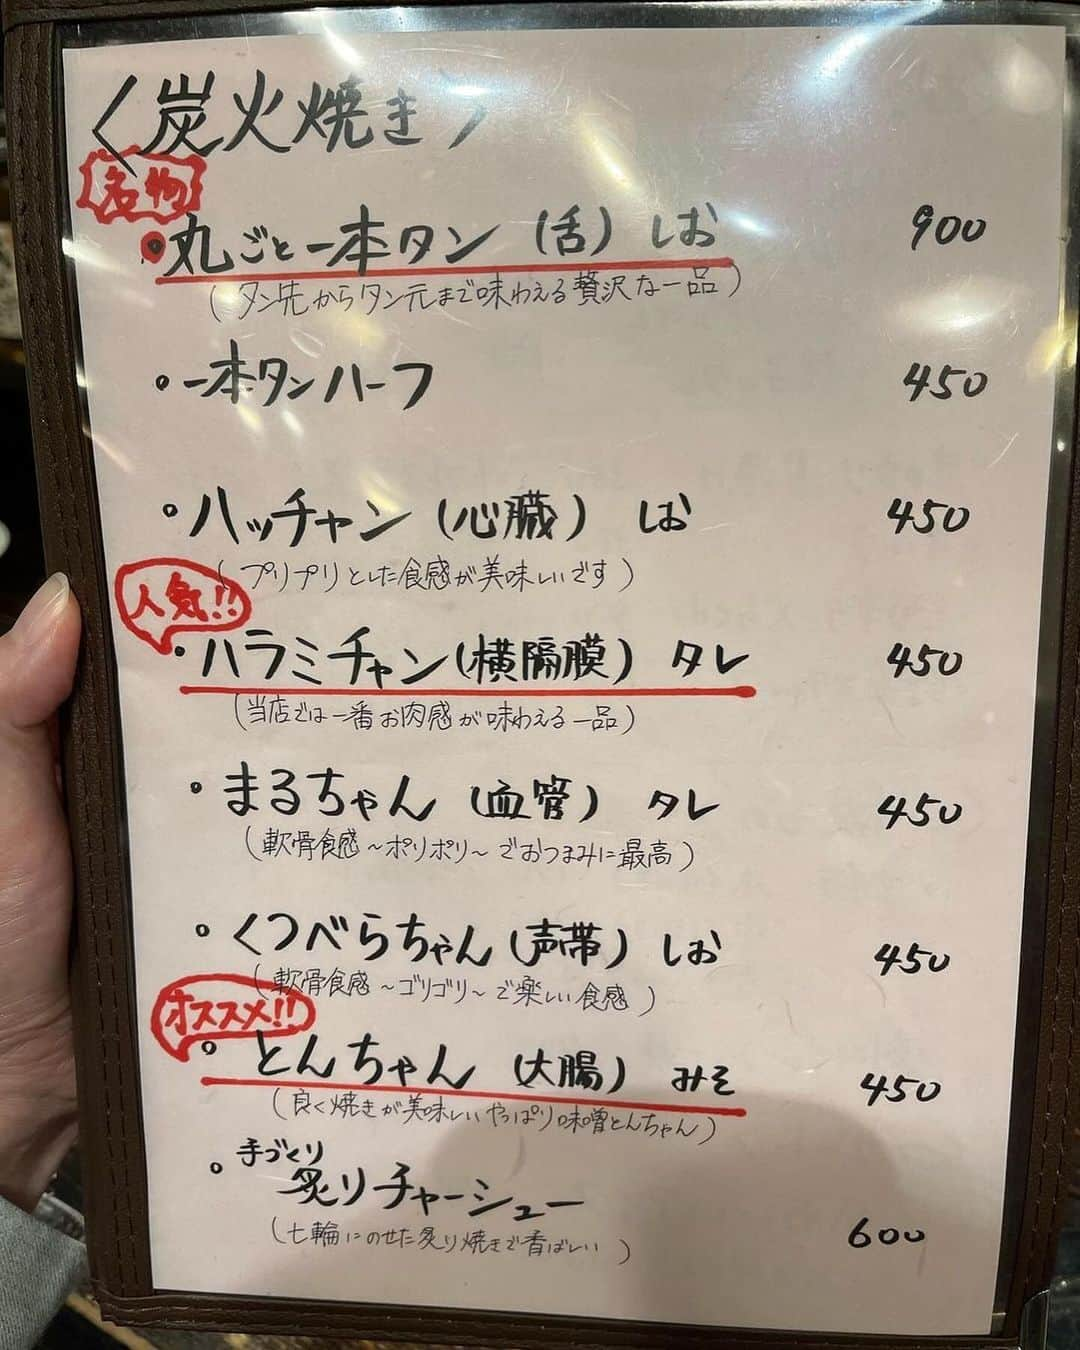 〈炭火焼き〉
名物
丸ごと一本タン（舌）しお 900
（タン先からタン元まで味わえる贅沢な一品）
一本タンハーフ 450
ハッチャン（心臓）しお 450
（プリプリとした食感が美味しいです）
人気!!
ハラミチャン（横隔膜）タレ 450
（当店では一番お肉感が味わえる一品）
まるちゃん（血管）タレ 450
（軟骨食感～ポリポリ～でおつまみに最高）
くつべらちゃん（声帯）しお 450
（軟骨食感～ゴリゴリ～で楽しい食感）
オススメ!!
とんちゃん（大腸）みそ 450
（良く焼きが美味しいやっぱり味噌とんちゃん）
手づくり
炙りチャーシュー 600
（七輪にのせた炙り焼きで香ばしい）